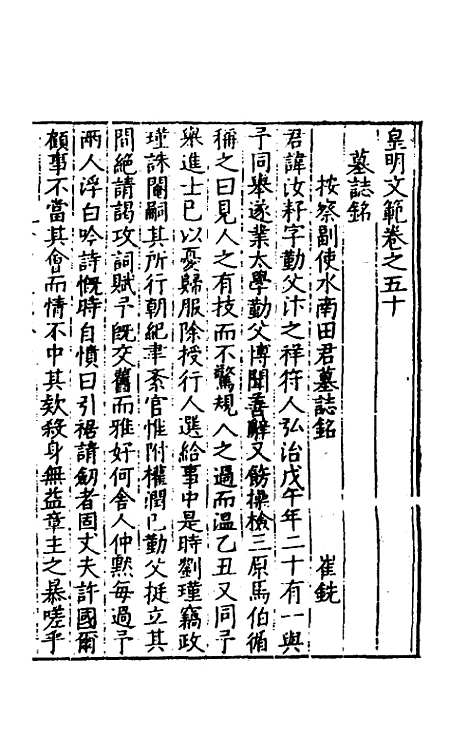 皇明文範卷之五十
墓誌銘
按察副使水南田君墓誌銘 崔銑
君諱汝耔字勤父汴之祥符人弘治戊午年二十有一與
予同舉遂業太學勤父博聞善辭又飭操檢三原馬伯循
稱之曰見人之有技而不驚規人之過而溫乙丑又同予
舉進士已以憂歸服除授行人選給事中是時劉瑾竊政
瑾誅閹嗣其所行朝紀聿紊官惟附權潤已勤父挺立其
間絶請謁攻詞賦予旣交舊而雅好何舍人仲黙每過予
兩人浮白吟詩慨時自憤曰引裾請劒者固丈夫許國爾
顧事不當其會而情不中其欵殺身無益章主之暴嗟乎